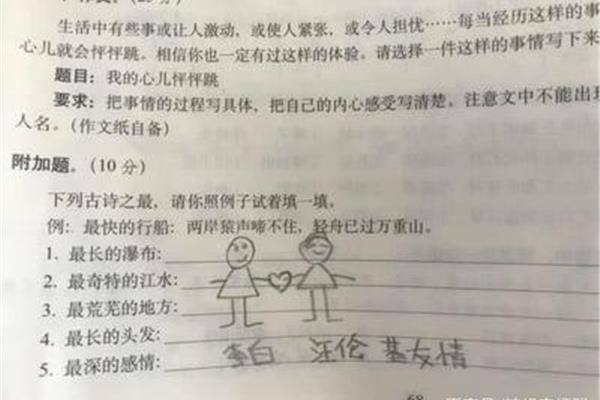 生活中有些事或让人激动，或使人紧张，或令人担忧……每当经历这样的事
心儿就会怦怦跳。相信你也一定有过这样的体验。请选择一件这样的事情写下来
题目：我的心儿怦怦跳
要求：把事情的过程写具体，把自己的内心感受写清楚。注意文中不能出现
人名。（作文纸自备）
附加题。（10 分）
下列古诗之最，请你照例子试着填一填。
例：最快的行船：两岸猿声啼不住，轻舟已过万重山。
1. 最长的瀑布：
2. 最奇特的江水：
3. 最荒芜的地方：
4. 最长的头发：
5. 最深的感情：李白 汪伦 基友情
68